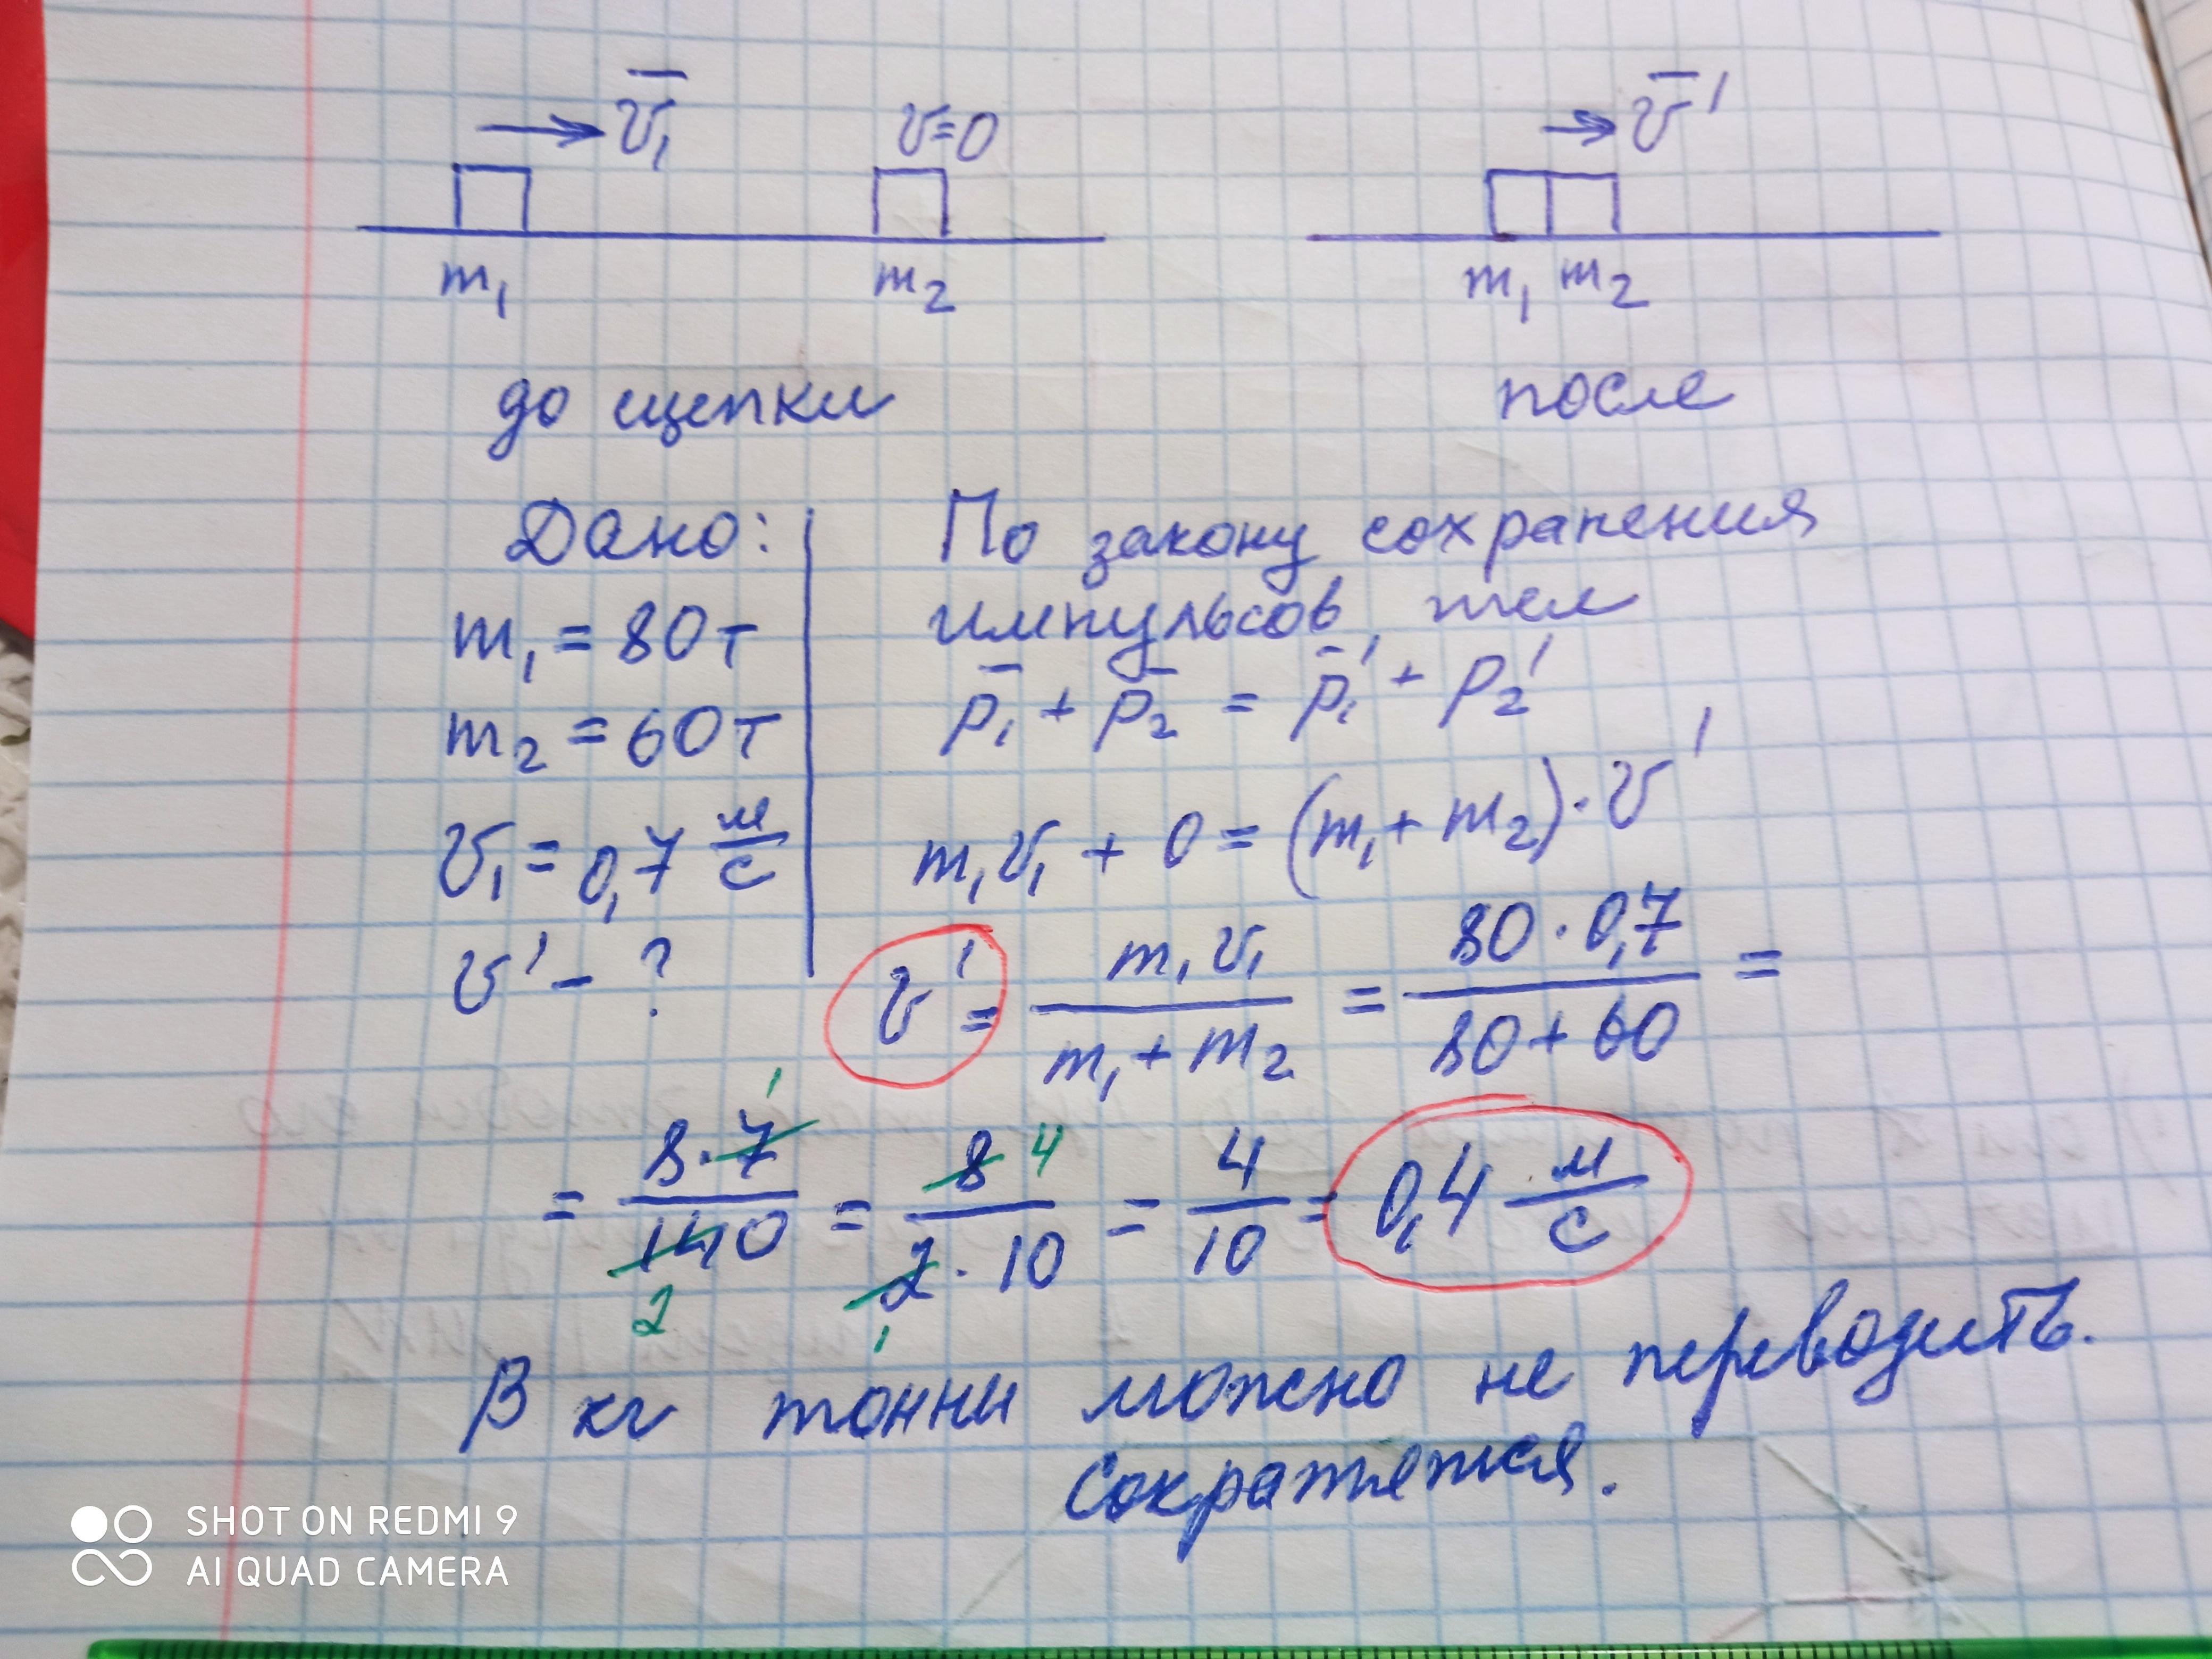 v̄₁ v=0 v̄'
m₁ m₂ m₁ m₂
до сцепки после
Дано:
m₁ = 80т
m₂ = 60т
v₁ = 0,7 м/с
v' - ?
По закону сохранения
импульсов, тел
p̄₁ + p̄₂ = p̄₁' + p₂'
m₁v₁ + 0 = (m₁ + m₂)·v'
v' = m₁v₁/(m₁ + m₂) = 80·0,7/(80+60) =
= 8·7/140 = 8/(2·10) = 4/10 = 0,4 м/с
1 4
2 1
В кг тонны можно не переводить.
Сократятся.
SHOT ON REDMI 9
AI QUAD CAMERA